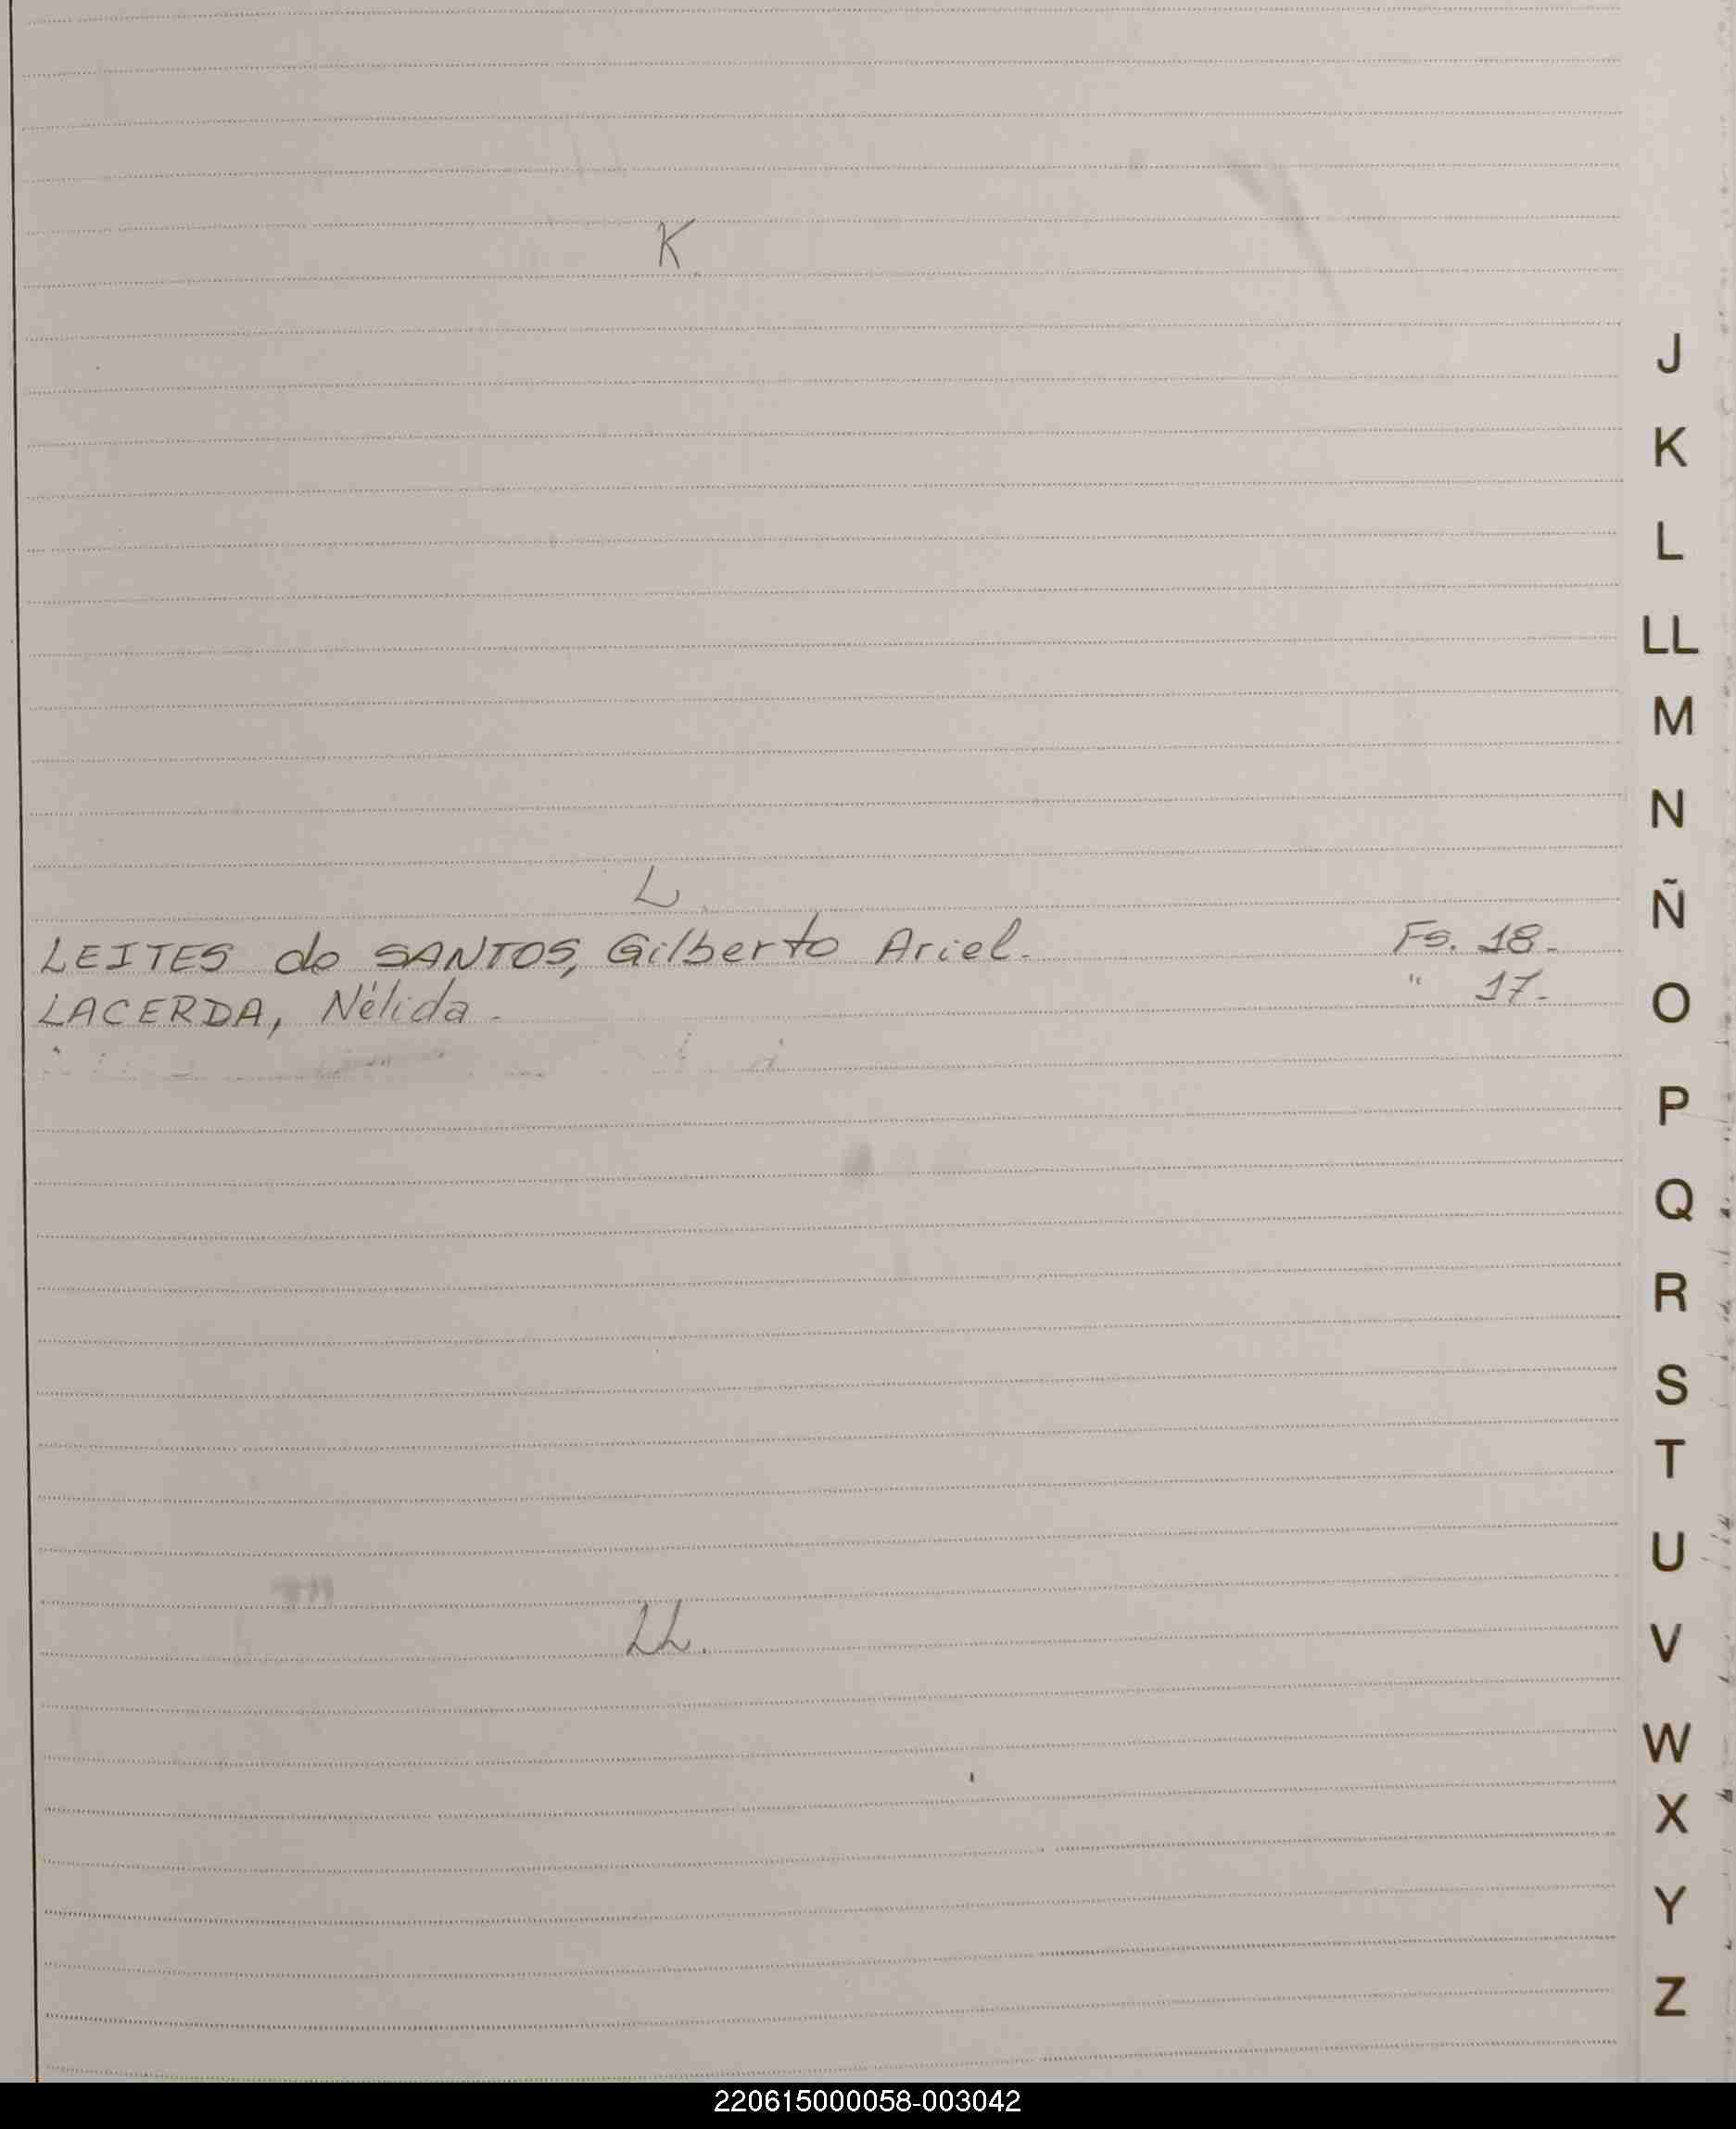 K
L
LEITES do SANTOS, Gilberto Ariel. Fs. 18.-
LACERDA, Nélida. " 17.-
LL.
J
K
L
LL
M
N
Ñ
O
P
Q
R
S
T
U
V
W
X
Y
Z
220615000058-003042